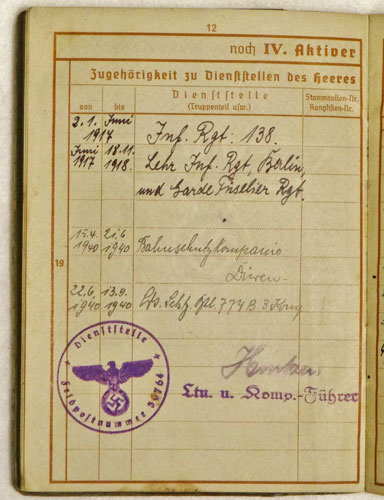 12
noch IV. Aktiver
Zugehörigkeit zu Dienststellen des Heeres
von
bis
Dienststelle
(Truppenteil usw.)
Stammrollen-Nr.
Ranglisten-Nr.
2.1. Juni
1917
Inf. Rgt. 138.
Juni 18.11.
1917 1918.
Lehr Inf. Rgt, Berlin,
und Garde Füselier Rgt.
15.4. 21.6
1940 1940
Bahnschutzkompanie
Düren
19
22.6. 13.9.
1940 1940
Dienststelle
Feldpostnummer
Ltn. u. Komp.-Führer